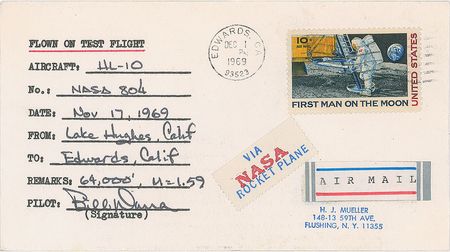 FLOWN ON TEST FLIGHT
AIRCRAFT: HL-10
No.: NASA 804
DATE: Nov 17, 1969
FROM: Lake Hughes, Calif
TO: Edwards, Calif
REMARKS: 64,000', M=1.59
PILOT: Bill Dana
(Signature)
EDWARDS, CA
DEC 1
PM
1969
93523
10¢
UNITED STATES
FIRST MAN ON THE MOON
VIA
NASA
ROCKET PLANE
AIR MAIL
H. J. MUELLER
148-13 59TH AVE,
FLUSHING, N. Y. 11355